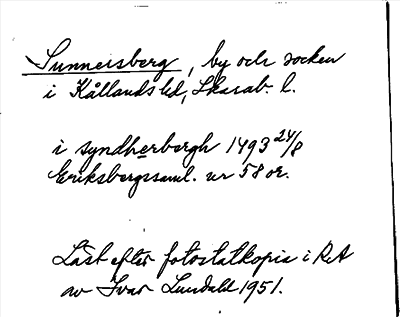 Sunnersberg, by och socken
i Kållands hd, Skarab. l.
i syndherbergh 1493 24/8
Eriksbergssaml. nr 58 or.
Läst efter fotostatkopia i RA
av Ivar Lundahl 1951.